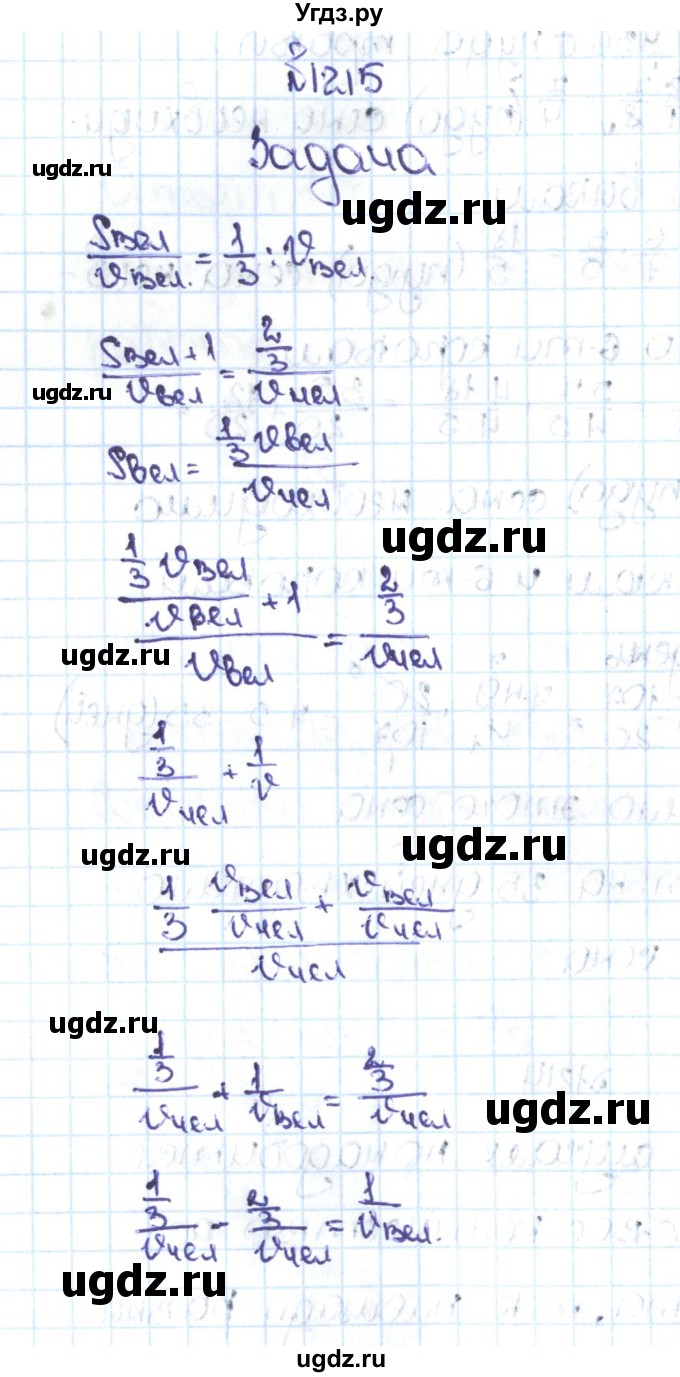 Угдз.ру
№1215
ugdz.ru
Задача
ugdz.ru
Sвел/vвел. = 1/3 : vвел.
ugdz.ru
(Sвел+1)/vвел = (2/3)/vчел
Sвел = (1/3 vвел)/vчел
ugdz.ru
((1/3 vвел)/vвел + 1)/vвел = (2/3)/vчел
ugdz.ru
(1/3)/vчел + 1/v
ugdz.ru
ugdz.ru
(1/3 vвел/vчел + vвел/vчел)/vчел
ugdz.ru
(1/3)/vчел + 1/vвел = (2/3)/vчел
ugdz.ru
(1/3)/vчел - (2/3)/vчел = 1/vвел.
ugdz.ru
ugdz.ru